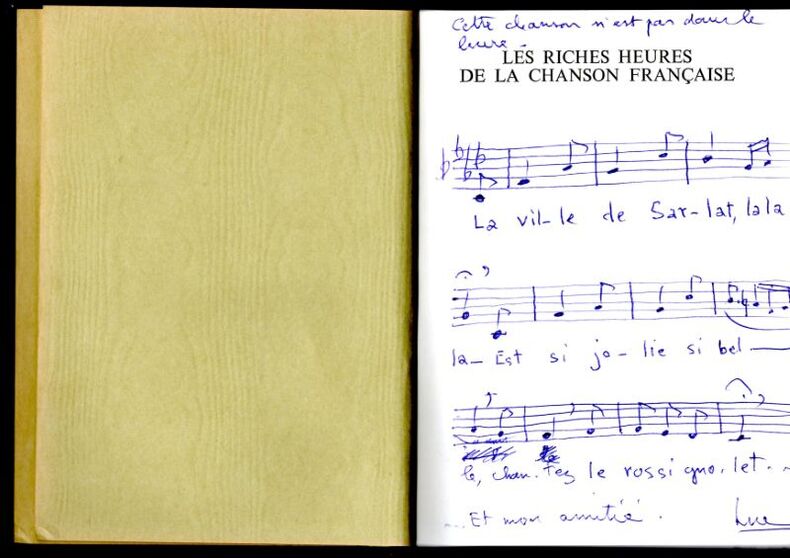 Cette chanson n'est pas dans le
livre -
LES RICHES HEURES
DE LA CHANSON FRANÇAISE
La vil-le de Sar-lat, la la
la- Est si jo-lie si bel-
le, chan-tez le rossignolet.
... Et mon amitié.
Luc